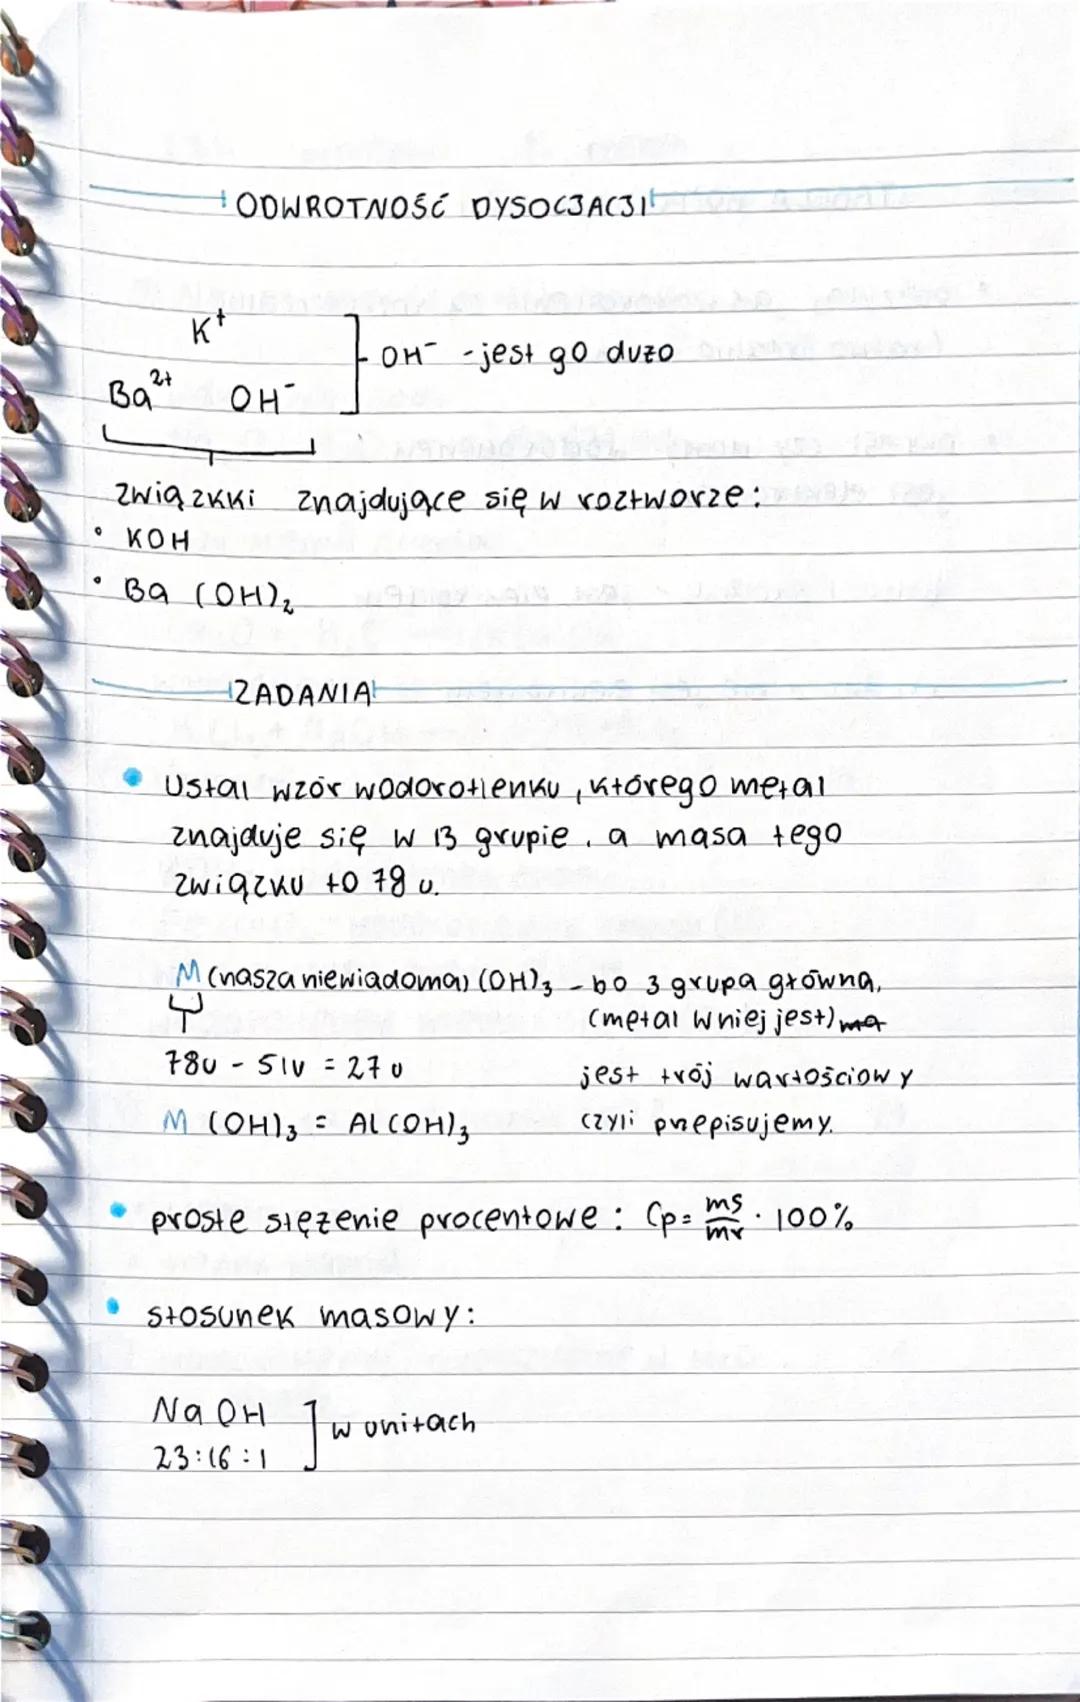 ODWROTNOŚĆ DYSOCJACJI
K⁺
OH⁻ - jest go dużo
Ba²⁺ OH⁻
związkki znajdujące się w roztworze:
• KOH
• Ba (OH)₂
ZADANIA
• Ustal wzór wodorotlenku, którego metal
znajduje się w 13 grupie, a masa tego
związku to 78 u.
M (nasza niewiadoma) (OH)₃ - bo 3 grupa główna,
(metal w niej jest) ma
78u - 51u = 27u
jest trój wartościowy
M (OH)₃ = Al(OH)₃
czyli przepisujemy.
• proste stężenie procentowe: Cp = ms/mr · 100%
• stosunek masowy:
NaOH
w unitach
23:16:1